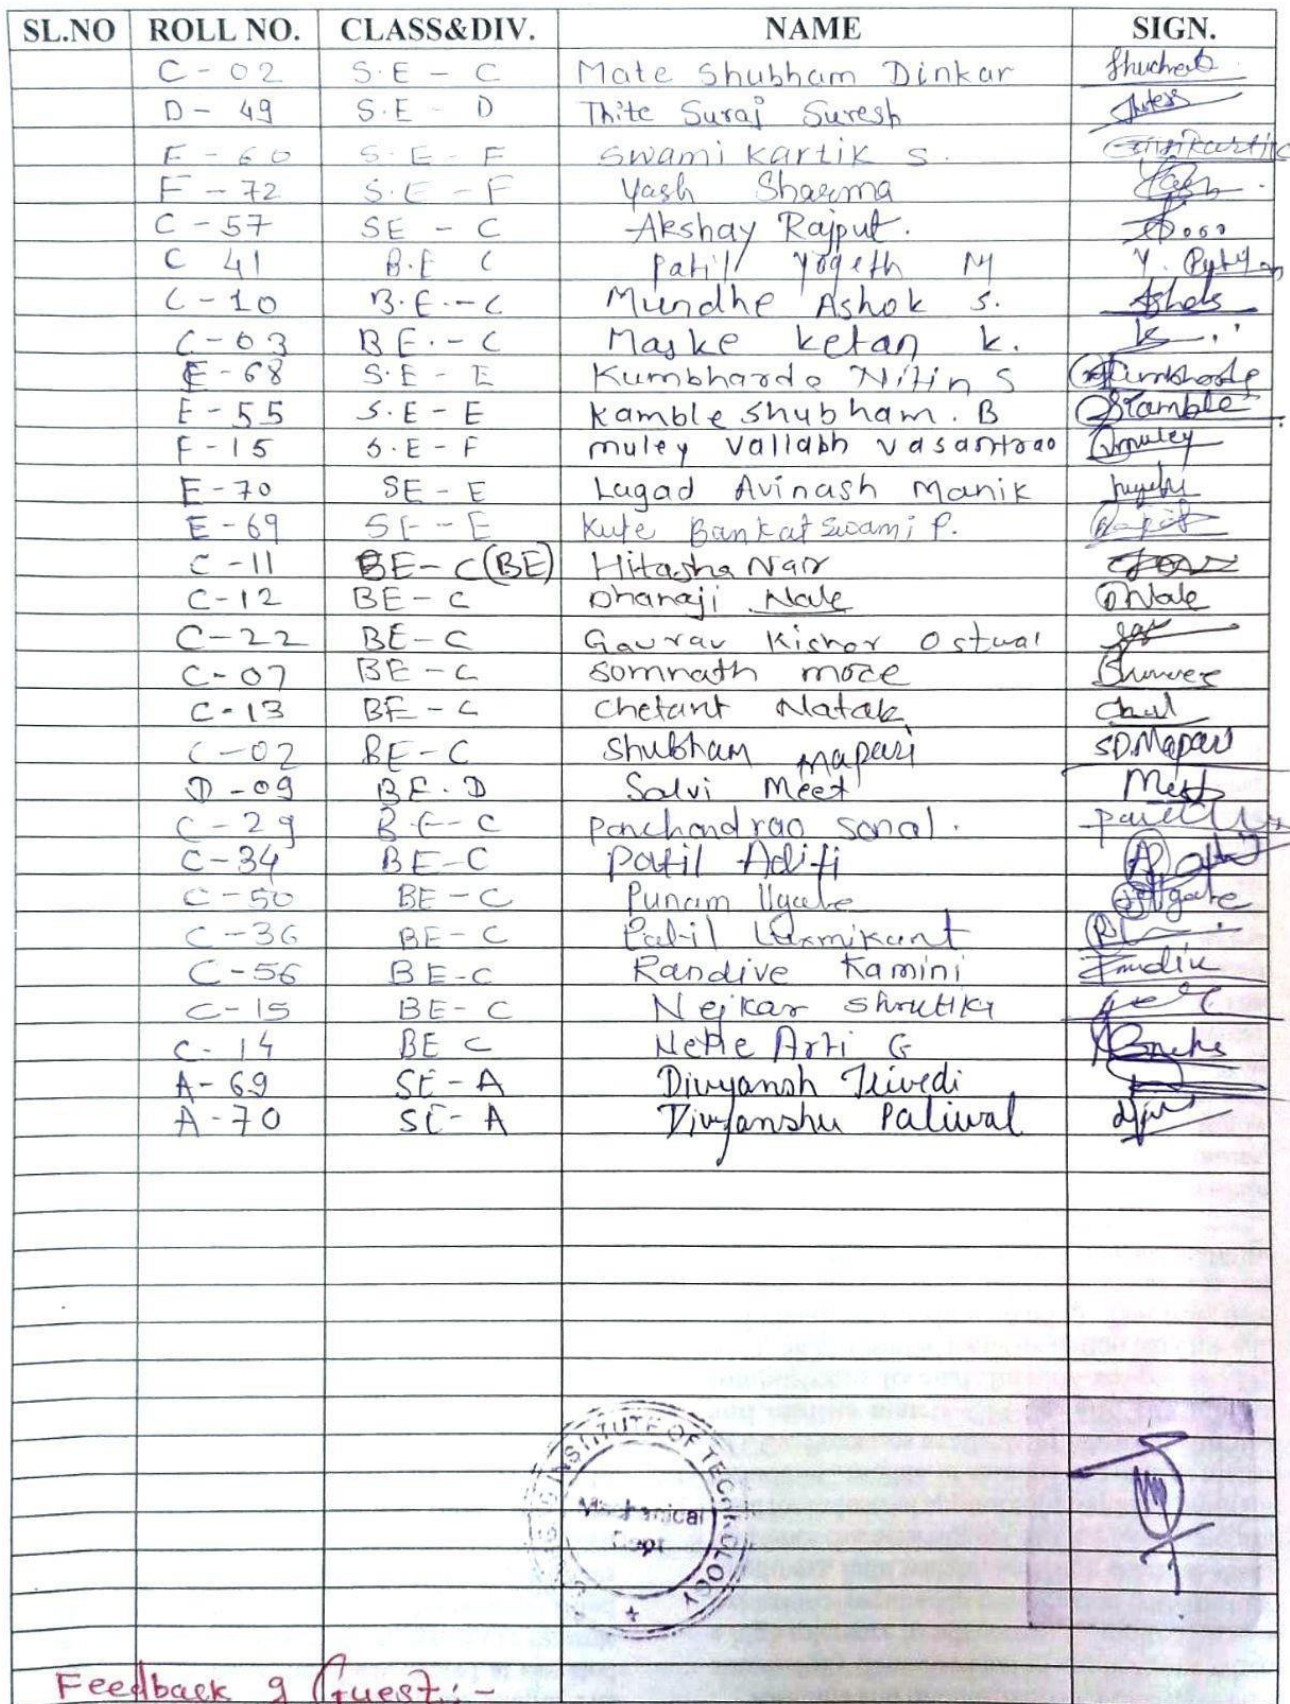 SL.NO ROLL NO. CLASS&DIV. NAME SIGN.
C - 02 S.E - C Mate Shubham Dinkar
D - 49 S.E - D Thite Suraj Suresh
F - 60 S.E - F Swami Kartik S.
F - 72 S.E - F Yash Sharma
C - 57 SE - C Akshay Rajput.
C 41 B.E C Patil Yogesh M
C - 10 B.E. - C Mundhe Ashok S. Ashok
C - 03 BE. - C Maske Ketan K. K
E - 68 S.E - E Kumbharde Nitin S
E - 55 S.E - E Kamble Shubham. B
F - 15 S.E - F muley vallabh vasantrao muley
E - 70 SE - E Lagad Avinash Manik
E - 69 SE - E Kute Bankat Swami P.
C - 11 BE - C (BE) Hitasha Nar
C - 12 BE - C Dhanaji Nale DNale
C - 22 BE - C Gaurav Kishor Ostwal
C - 07 BE - C Somnath more
C - 13 BE - C Chetant Natak
C - 02 BE - C Shubham Mapari S.D.Mapari
D - 09 BE. D Salvi Meet Meet
C - 29 B.E - C Panchandrao Sonal.
C - 34 BE - C Patil Aditi
C - 50 BE - C Punam Ugale
C - 36 BE - C Patil Laxmikant
C - 56 BE - C Randive Kamini
C - 15 BE - C Nejkar Shrutika
C - 14 BE C Nehe Arti G
A - 69 SE - A Divyansh Trivedi
A - 70 SE - A Divyanshu Paliwal
INSTITUTE OF TECHNOLOGY
Mechanical
Dept
Feedback of Guest : -